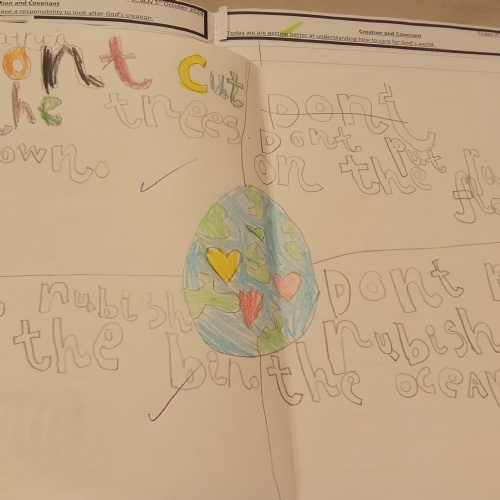 ation and Covenant
ave a responsibility to look after God's creation.
Creation and Covenant
Today we are getting better at understanding how to care for God's world.
ont cut
the trees
own.
Dont
Dont put ru
on the flo
rubish
the bin.
Dont
rubish
the ocean